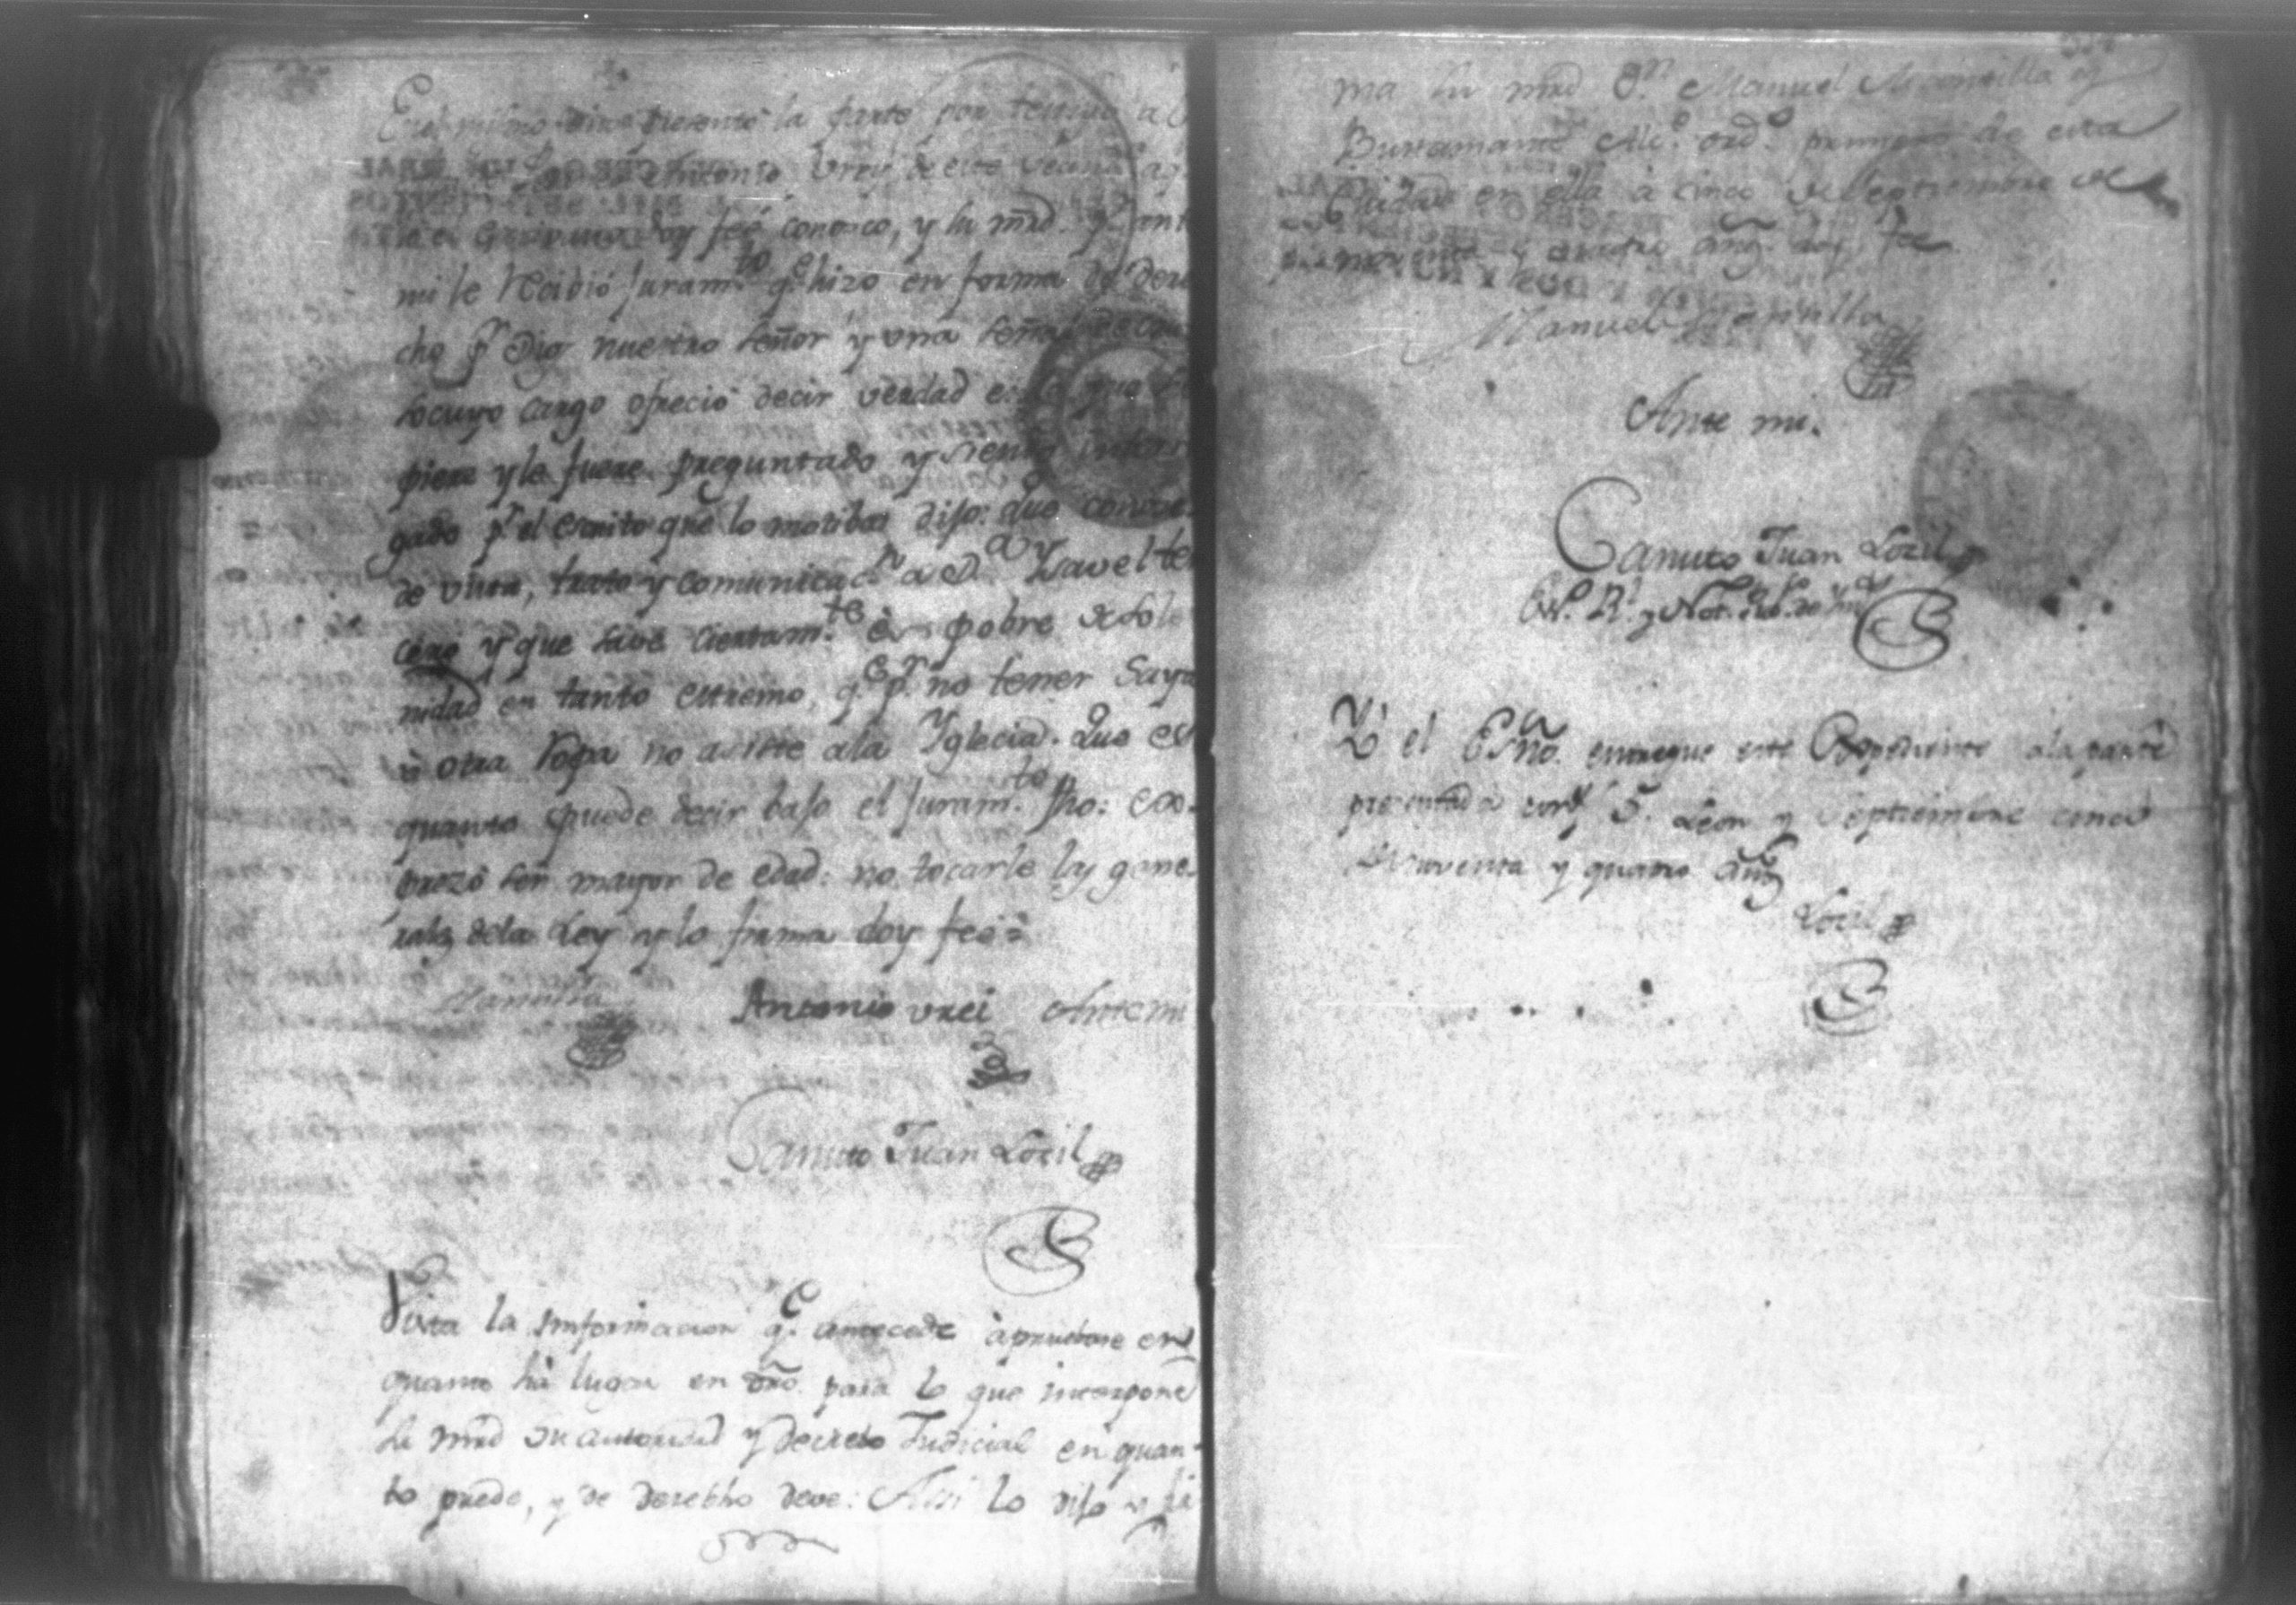 En el mismo dia presentó la parte por testigo a
Antonio Urey de este
el Escrivano doy feé conosco, y su mrd. pr. ante
mi le recivió juram.to q.e hizo en forma de dere
cho p.r Dios nuestro señor y una señal de cru
so cuyo cargo ofreció decir verdad en lo que su
piere y le fuere preguntado y siendo interro
gado p.r el escrito que lo motiba dijo: Que conose
de vista, trato y comunicac.n a D.a
y que save ciertam.te és pobre de sole
nidad en tanto estremo, q.e p.r no tener saya
ú otra Ropa no asiste ala Yglecia. Que es
quanto puede decir bajo el juram.to fho: ex-
prezó ser mayor de edad: no tocarle las gene-
rales dela Ley y lo firma doy feé=
Mansilla Antonio urei Ante mi
Canuto Juan Lozil
Vista la Ynformacion q.e antecede apruebase en
quanto há lugar en dro. para lo que interpone
su mrd su autoridad y decreto Judicial en quan-
to puede, y de derecho deve: Asi lo dijo y fir
ma su mrd D.n Manuel Mansilla y
Bustamante Alc.e ord.o primero de esta
Ciudad en ella à cinco de Septiembre de
noventa y quatro añ.s doy feé
Manuel Mansilla
Ante mi.
Canuto Juan Lozil
Es.no R.l y Not. pub.co de Ynd.s
Yo el Esño. entregue este Expediente ala parte
presentada en f. 5. Leon y Septiembre cinco
de noventa y quatro añ.s
Lozil